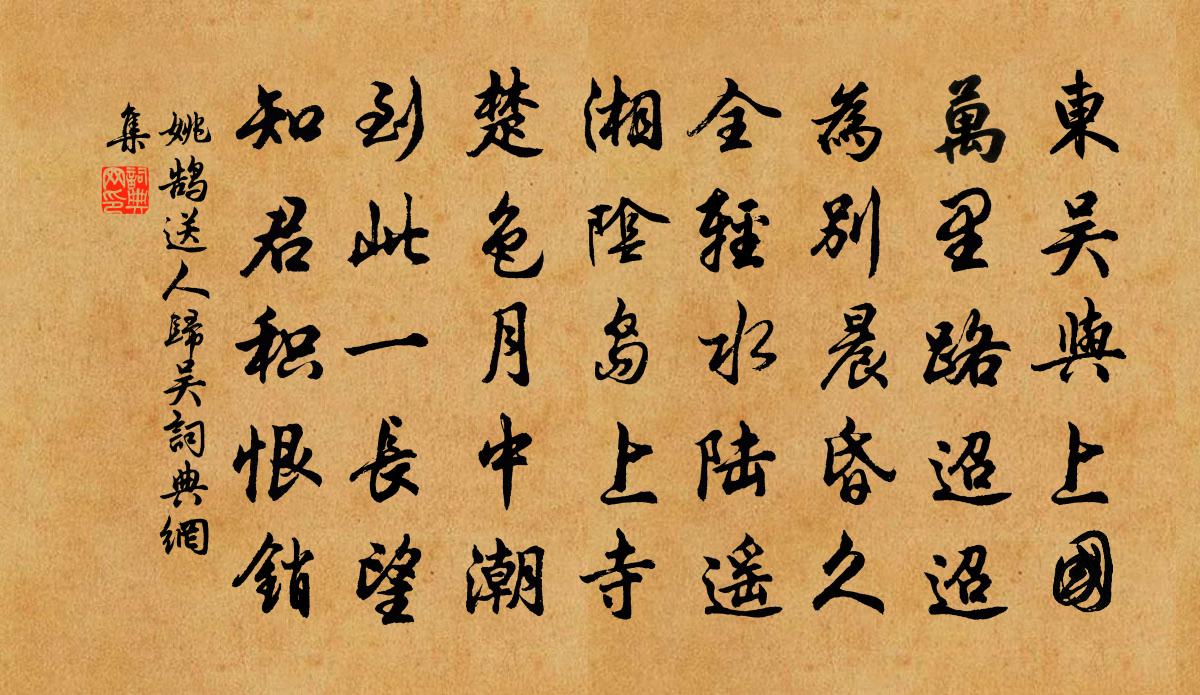 東吴與上國
萬里路迢迢
為別晨昏久
全輕水陆遥
湘陰島上寺
楚色月中潮
到此一長望
知君积恨銷
姚鵠送人歸吴詞典網
集
詞典
网印